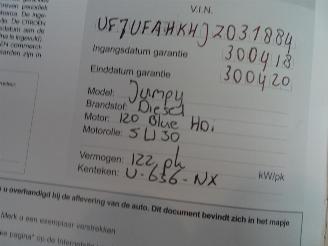 V.I.N.
UF7UFAHKHJZ031884
Ingangsdatum garantie 300418
Einddatum garantie 300420
Model: Jumpy
Brandstof: Diesel
Motor: 120 Blue HDi
Motorolie: 5W30
Vermogen: 122 pk kW/pk
Kenteken: V-636-NX
u overhandigd bij de aflevering van de auto. Dit document bevindt zich in het mapje
Merk u een exemplaar verstrekken
ke pagina" op de